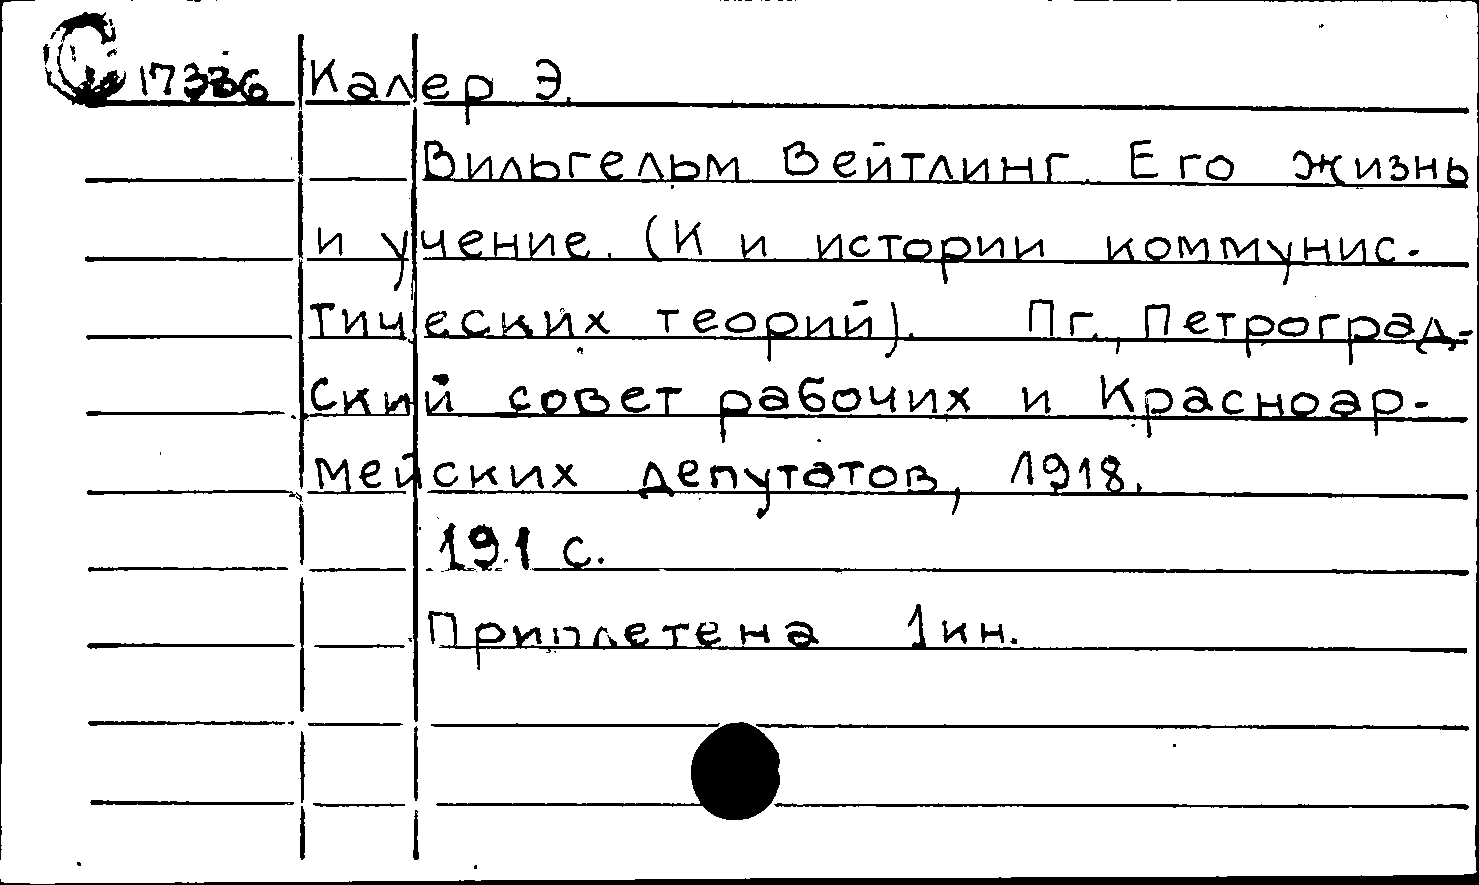 С 17336 Калер Э.
Вильгельм Вейтлинг. Его жизнь
и учение. (К и истории коммунис-
тических теорий). Пг., Петроград-
ский совет рабочих и Красноар-
мейских депутатов, 1918.
191 с.
Приплетена 1 кн.